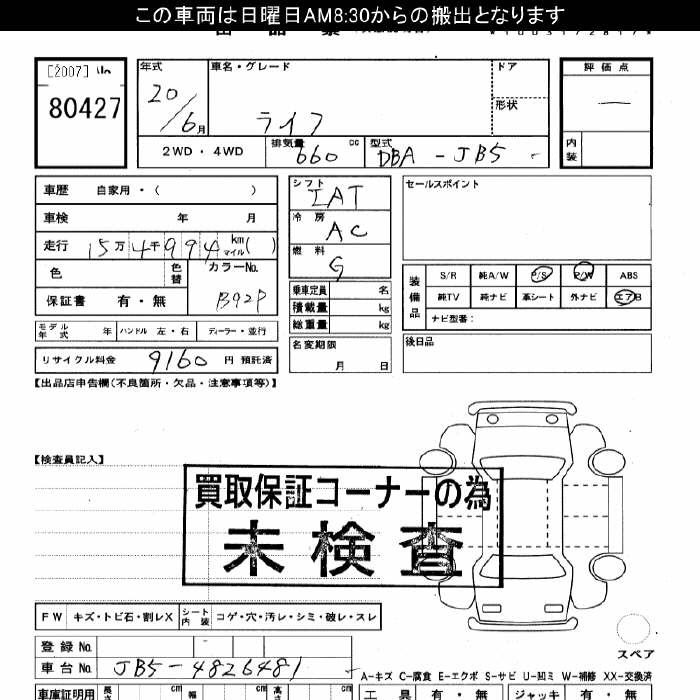 この車両は日曜日AM8:30からの搬出となります
[2007]
80427
年式 20/6月
車名・グレード ライフ
ドア
形状
評価点 —
内装
2WD・4WD
排気量 660 cc
型式 DBA-JB5
車歴 自家用・( )
車検 年 月
走行 15万4千994 km マイル( )
色 色替
カラーNo. B92P
保証書 有・無
モデル年式 年 ハンドル 左・右 ディーラー・並行
リサイクル料金 9160 円 預託済
シフト IAT
冷房 AC
燃料 G
乗車定員 名
積載量 kg
総重量 kg
名変期限 月 日
セールスポイント
装備品 S/R 純A/W P/S P/W ABS
純TV 純ナビ 革シート 外ナビ エアB
ナビ型番:
後日品
【出品店申告欄(不良箇所・欠品・注意事項等)】
【検査員記入】
買取保証コーナーの為
未検査
FW キズ・トビ石・割レX シート内装 コゲ・穴・汚レ・シミ・破レ・スレ
スペア
登録No.
車台No. JB5-4826481
A-キズ C-腐食 E-エクボ S-サビ U-凹ミ W-補修 XX-交換済
車庫証明用 長さ cm 幅 cm 高さ cm
工具 有・無 ジャッキ 有・無